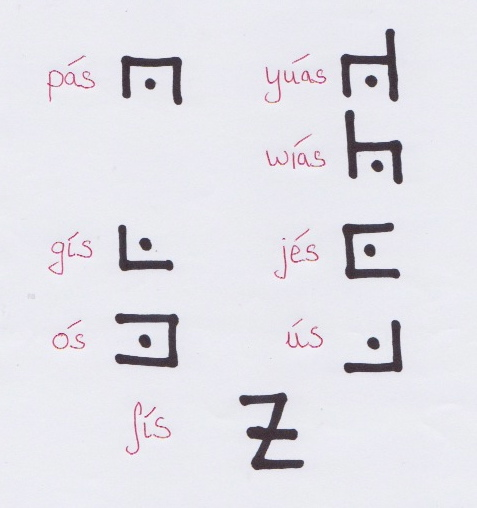 pás yúás
wíás
gís jés
ós ús
ʃís